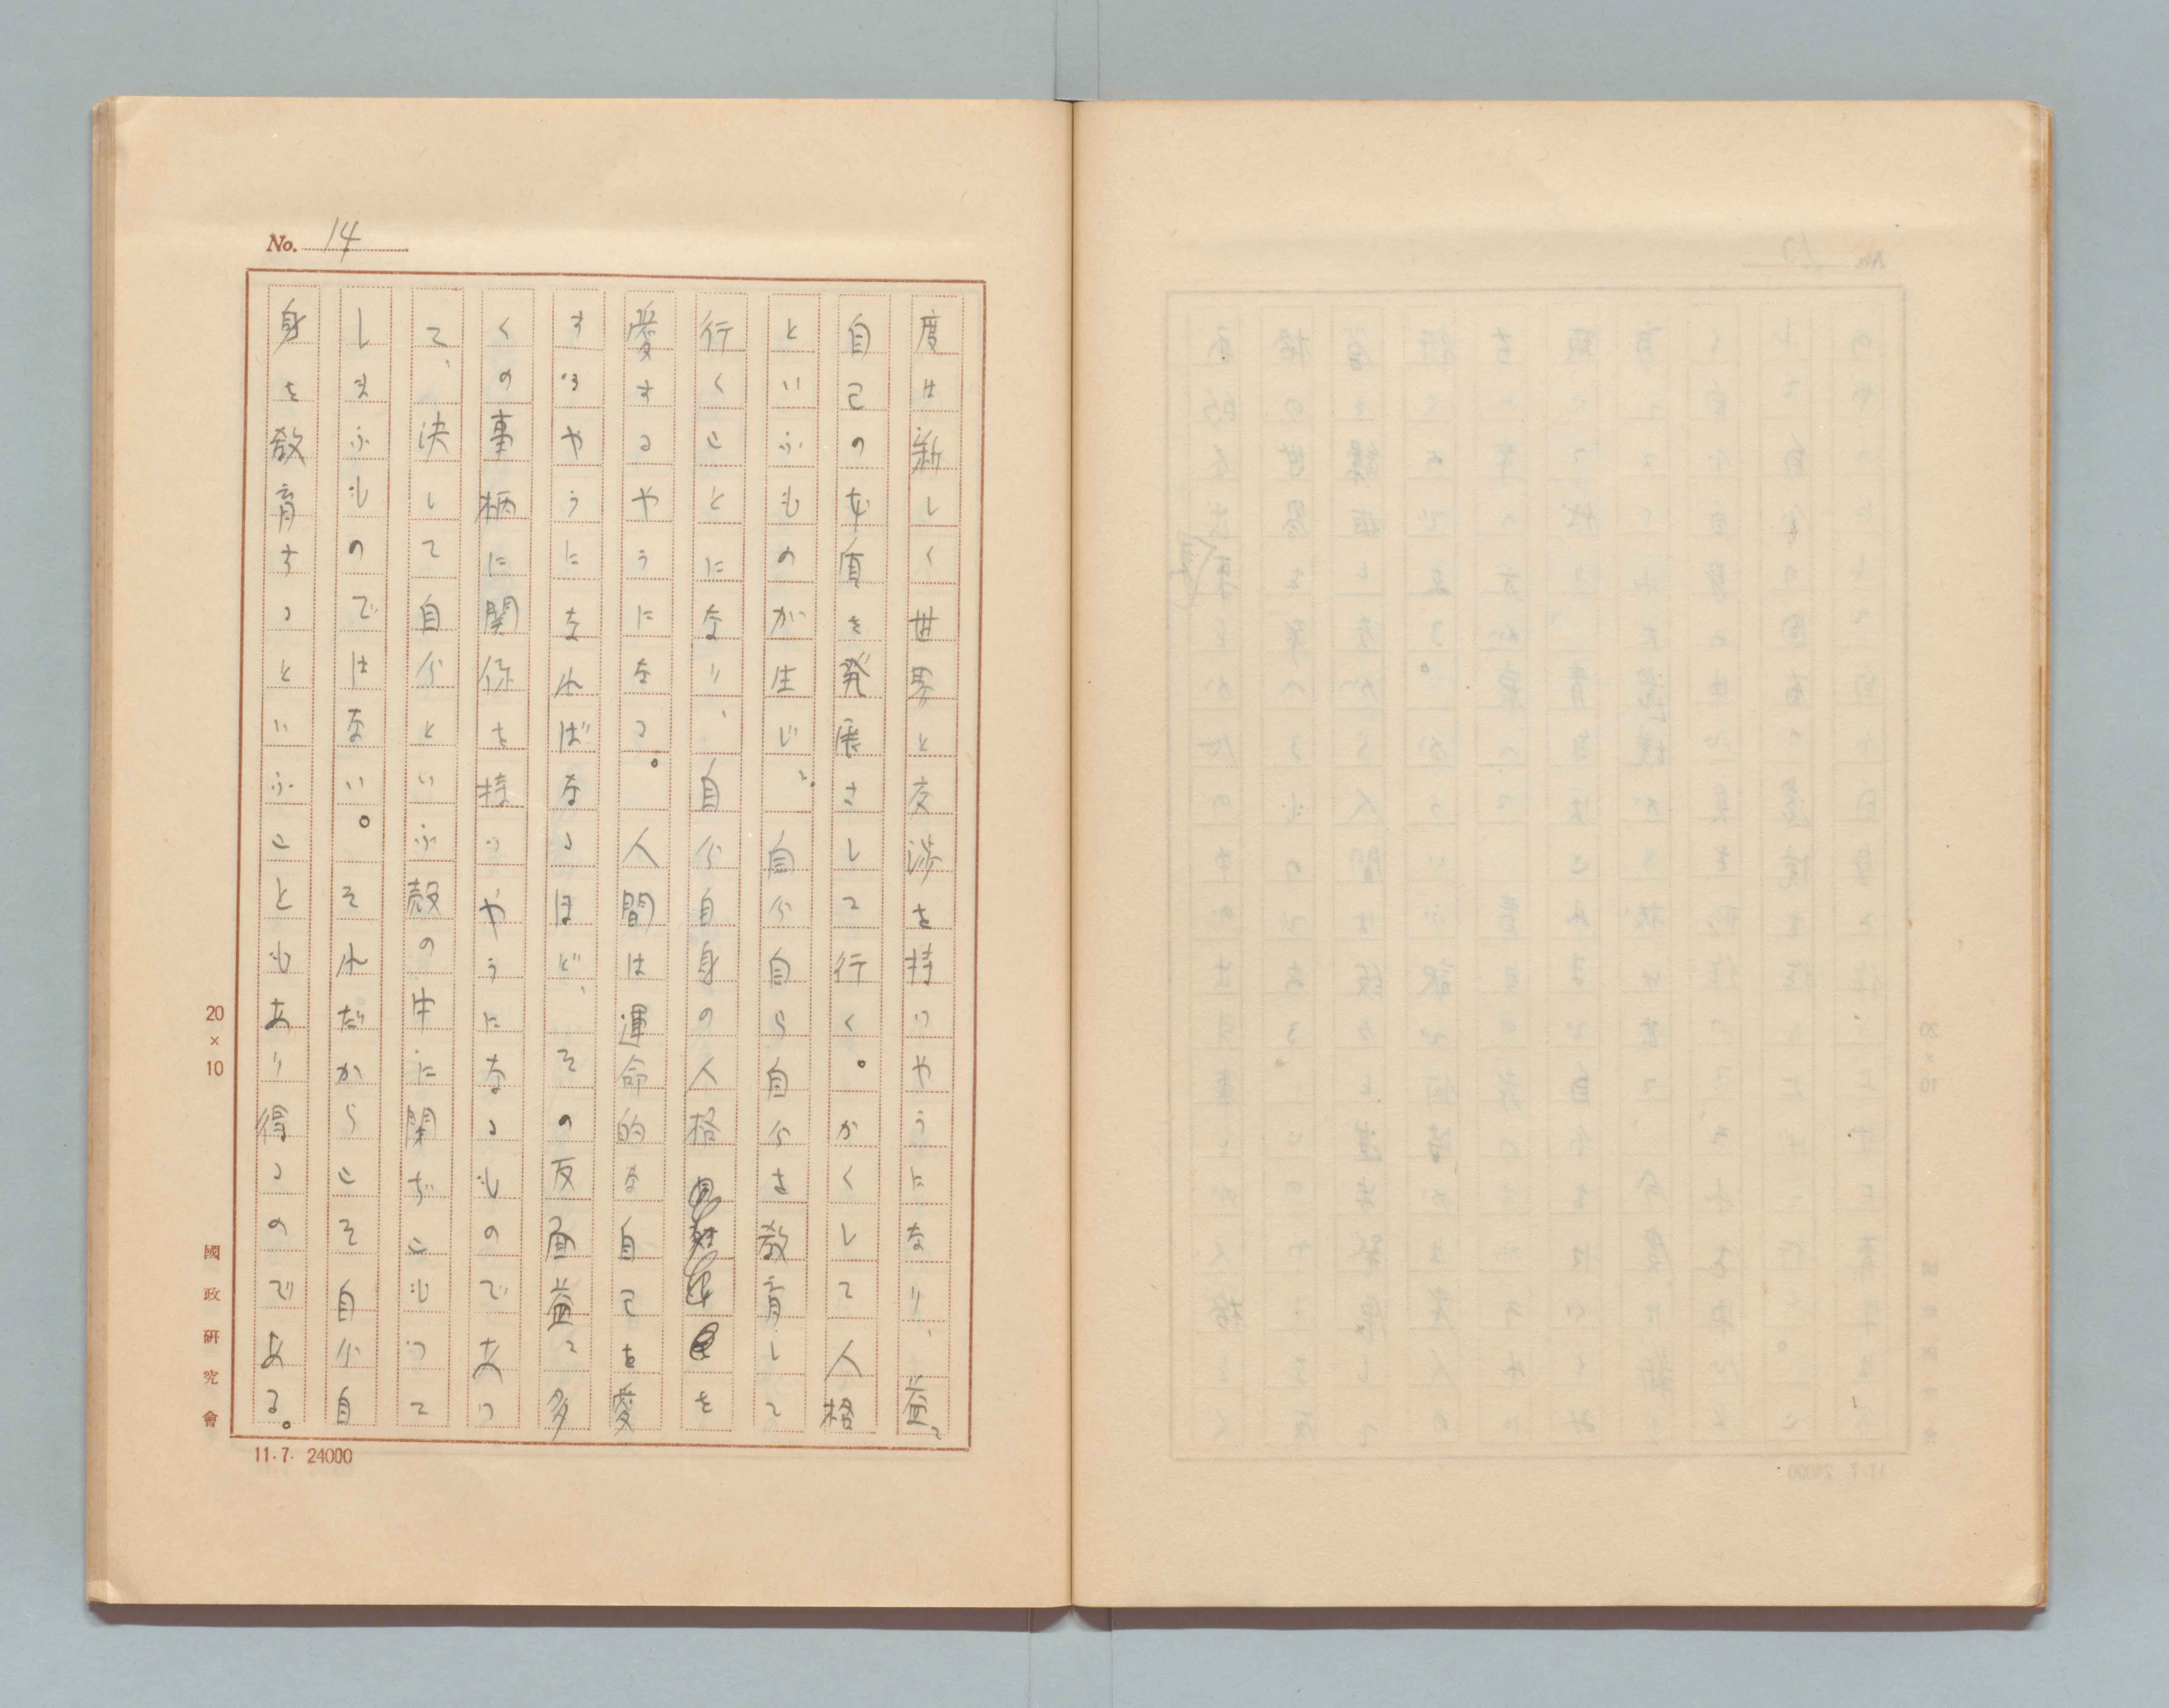 No. 14
度は新しく世界と交渉を持つやうになり、益〻
自己の素質を発展さして行く。かくして人格
といふものが生じ〻。自分自ら自分を教育して
行くことになり、自分自身の人格を
愛するやうになる。人間は運命的な自己を愛
するやうになればなるほど、その反面益〻多
くの事柄に関係を持つやうになるものであつ
て、決して自分といふ殻の中に閉ぢこもつて
しまふものではない。それだからこそ自分自
身を教育するといふこともあり得るのである。
20×10
國政研究會
11.7. 24000